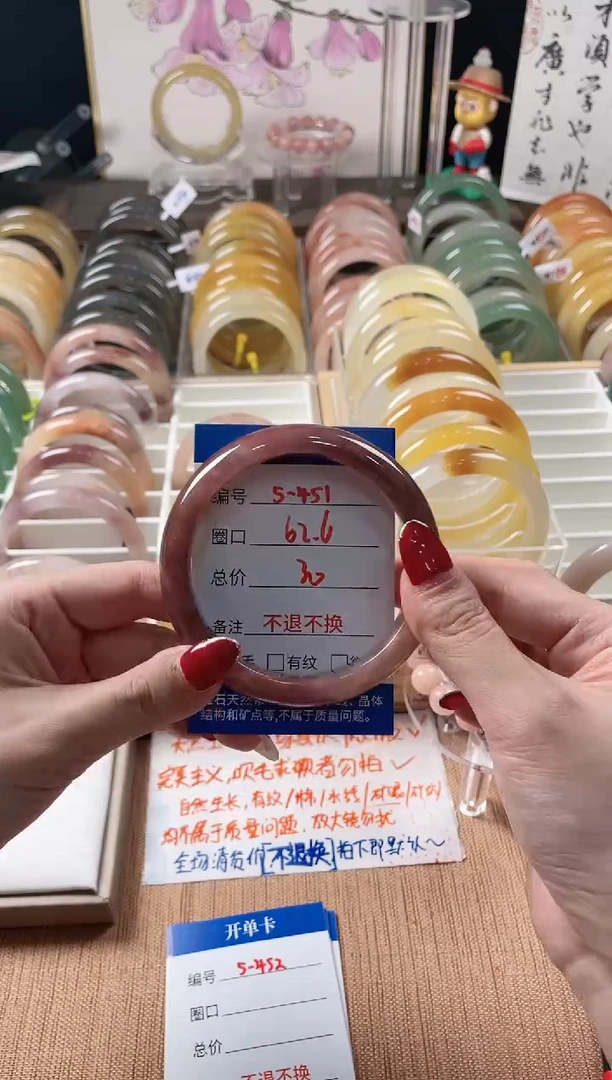 以廣才非志無
須學也非
编号 5-451
圈口 62.6
总价 30
备注 不退不换
有纹
晶体
结构和矿点等,不属于质量问题。
完美主义,吹毛求疵者勿拍 ✓
自然生长,有纹/棉/水线/
均不属于质量问题.放大镜勿扰
全场清货价[不退换]拍下即默认~
开单卡
编号 5-452
圈口
总价
不退不换